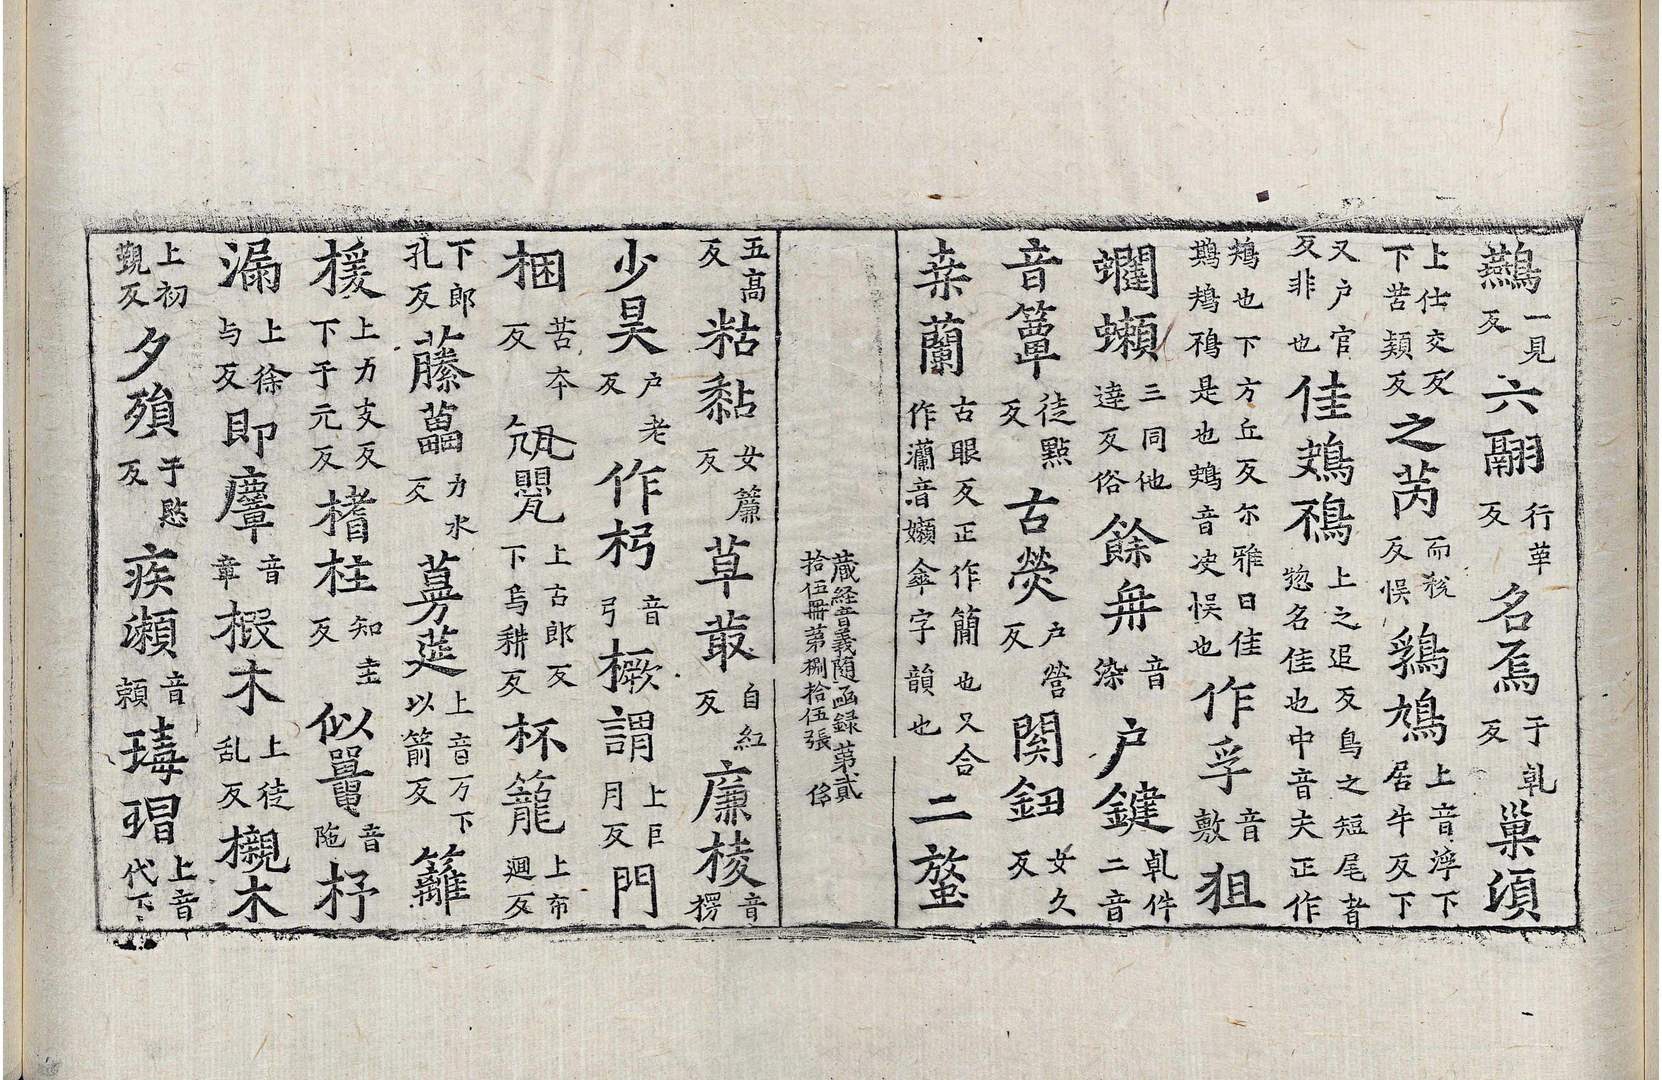 鷰一見反六翮行革反名焉于乹反巢湏
上仕交反下苦頴反之芮而稅反悮鷄鳩上音濟下居牛反下
又户官反非也佳鳺鴀上之追反鳥之短尾者惣名佳也中音夫正作
鳺也下方丘反尒雅曰佳鷑鳺鴀是也鴂音决悮也作孚音敷狙
蠝蠎三同他達反俗餘冉音染户鍵乹件二音
音簟徒點反古熒户營反関鈕女久反
枽蘭古眼反正作簡也又合作灡音嬾㐱字韻也二蝥
藏経音義随函録第貳
拾伍冊第捌拾伍張 修
五髙反粘黏女簾反草叢自紅反廉棱音楞
少昊户老反作杇音弓橛謂上巨月反門
梱苦夲反㼜甖上古郎反下烏耕反杯籠上布廻反
下郎孔反藤藟力水反蔓莚上音万下以箭反籬
楥上力支反下于元反楮柱知主反似鼍音陁杼
漏上徐与反即麞音章椴木上徒乱反櫬木
上初覲反夕殞于愍反疾瀬音頼瑇瑁上音代下